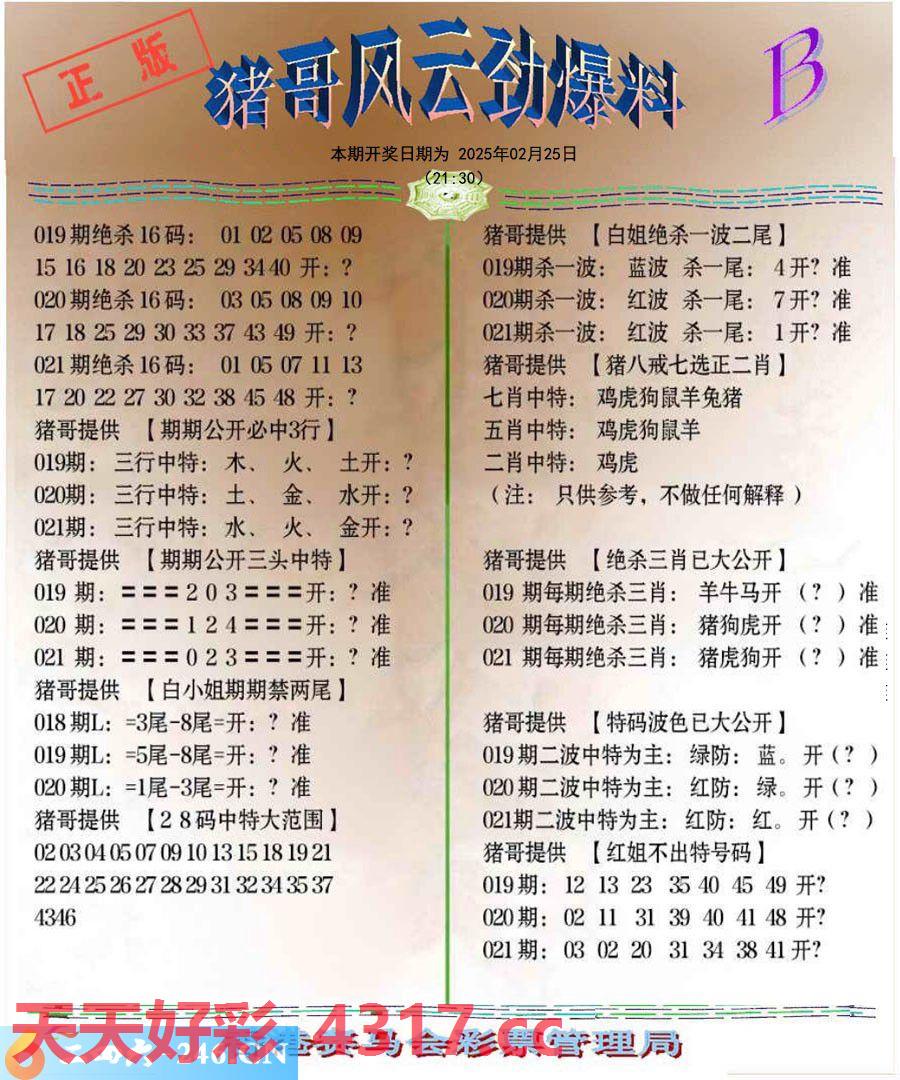 正版
猪哥风云劲爆料
B
本期开奖日期为 2025年02月25日
(21:30)
019期绝杀16码: 01 02 05 08 09
15 16 18 20 23 25 29 34 40 开: ?
020期绝杀16码: 03 05 08 09 10
17 18 25 29 30 33 37 43 49 开: ?
021期绝杀16码: 01 05 07 11 13
17 20 22 27 30 32 38 45 48 开: ?
猪哥提供 【期期公开必中3行】
019期: 三行中特: 木、 火、 土开: ?
020期: 三行中特: 土、 金、 水开: ?
021期: 三行中特: 水、 火、 金开: ?
猪哥提供 【期期公开三头中特】
019 期: 〓〓〓2 0 3〓〓〓开: ? 准
020 期: 〓〓〓1 2 4〓〓〓开: ? 准
021 期: 〓〓〓0 2 3〓〓〓开: ? 准
猪哥提供 【白小姐期期禁两尾】
018期L: =3尾-8尾=开: ? 准
019期L: =5尾-8尾=开: ? 准
020期L: =1尾-3尾=开: ? 准
猪哥提供 【28码中特大范围】
02 03 04 05 07 09 10 13 15 18 19 21
22 24 25 26 27 28 29 31 32 34 35 37
43 46
猪哥提供 【白姐绝杀一波二尾】
019期杀一波: 蓝波 杀一尾: 4开? 准
020期杀一波: 红波 杀一尾: 7开? 准
021期杀一波: 红波 杀一尾: 1开? 准
猪哥提供 【猪八戒七选正二肖】
七肖中特: 鸡虎狗鼠羊兔猪
五肖中特: 鸡虎狗鼠羊
二肖中特: 鸡虎
(注: 只供参考, 不做任何解释)
猪哥提供 【绝杀三肖已大公开】
019 期每期绝杀三肖: 羊牛马开 (?) 准
020 期每期绝杀三肖: 猪狗虎开 (?) 准
021 期每期绝杀三肖: 猪虎狗开 (?) 准
猪哥提供 【特码波色已大公开】
019期二波中特为主: 绿防: 蓝。开(?)
020期二波中特为主: 红防: 绿。开(?)
021期二波中特为主: 红防: 红。开(?)
猪哥提供 【红姐不出特号码】
019期: 12 13 23 35 40 45 49 开?
020期: 02 11 31 39 40 41 48 开?
021期: 03 02 20 31 34 38 41 开?
天天好彩 4317.cc
马会彩票管理局